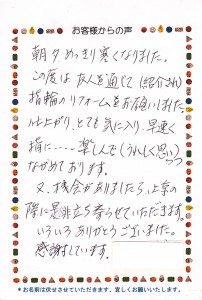 お客様からの声
朝夕めっきり寒くなりました。
この度は友人を通じて(紹介され)
指輪のリフォームをお願いしました。
仕上がり、とても気に入り、早速く
指に・・・・楽しんで(うれしく思い)つつ
ながめております。
又、機会がありましたら、上京の
際に是非立ち寄らせていただきます。
いろいろありがとうございました。
感謝しています。
*お名前は伏せさせていただきます、宜しくお願いいたします。